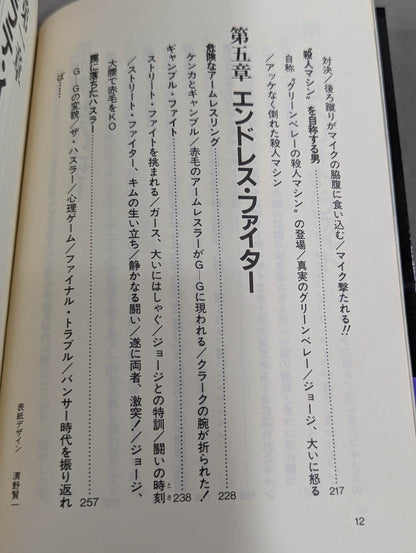 対決/後ろ蹴りがマイクの脇腹に食い込む/マイク撃たれる!!
〝殺人マシン〟を自称する男……217
自称〝グリーンベレーの殺人マシン〟の登場/真実のグリーンベレー/ジョージ、大いに怒る
/アッケなく倒れた殺人マシン
第五章 エンドレス・ファイター
危険なアームレスリング……228
ケンカとギャンブル/赤毛のアームレスラーがG―Gに現われる/クラークの腕が折られた!
ギャンブル・ファイト……238
ストリート・ファイトを挑まれる/ガース、大いにはしゃぐ/ジョージとの特訓/闘いの時刻とき
/ストリート・ファイター、キムの生い立ち/静かなる闘い/遂に両者、激突!/ジョージ、
大腰で赤毛をKO
罠に落ちたハスラー……257
G―Gの変貌/ザ・ハスラー/心理ゲーム/ファイナル・トラブル/バンサー時代を振り返れ
ば……
表紙デザイン 清野賢一
12